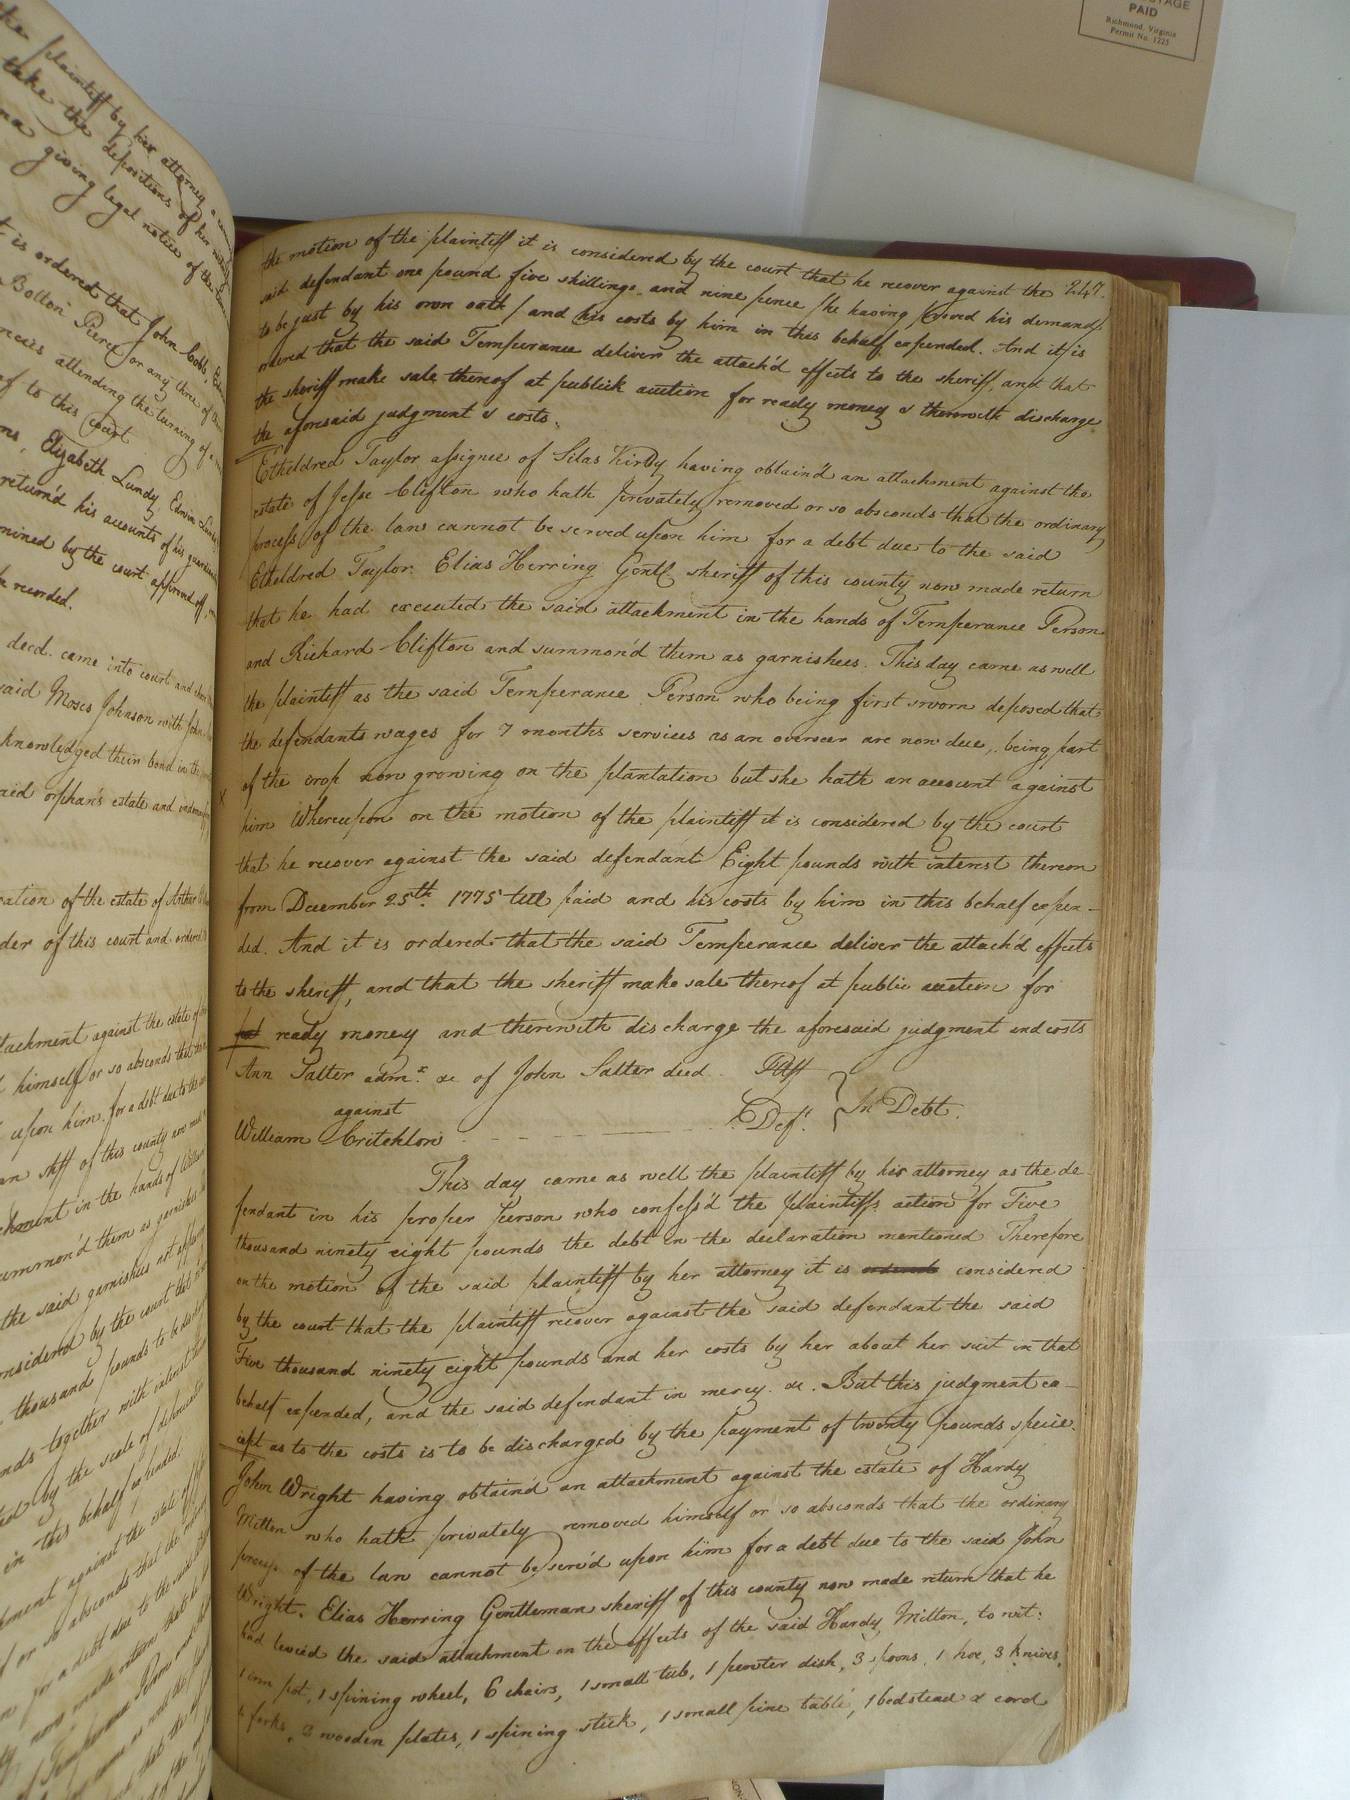 PAID
Richmond, Virginia
Permit No. 1225
the plaintiff by his attorney a
take the depositions of his
giving legal notice of the
is ordered that John Cobb,
Bolton Pierce or any three of
attending the turning of a
to this court
Elizabeth Lundy, Edwin
return'd his accounts of his
by the court approved off,
recorded.
decd. came into court and
said Moses Johnson with John
knowledged their bond in the
said orphan's estate and
of the estate of Arthur
der of this court and ordered
tachment against the estate of
himself or so absconds that the
upon him for a debt due to the
shff of this county now
in the hands of William
ummon'd them as garnishees
the said garnishees not
onsidered by the court that
thousand pounds to be
nds together with interest
by the scale of depreciation
in this behalf expended.
against the estate of
or so absconds that the
for a debt due to the said
now made return that he
Temperance Person
247.
the motion of the plaintiff it is considered by the court that he recover against the
said defendant one pound five shillings and nine pence (he having proved his demand
to be just by his own oath) and his costs by him in this behalf expended. And it is
ordered that the said Temperance deliver the attach'd effects to the sheriff, and that
the sheriff make sale thereof at publick auction for ready money & therewith discharge
the aforesaid judgment & costs.
Etheldred Taylor assignee of Silas Kirby having obtain'd an attachment against the
estate of Jesse Clifton who hath privately removed or so absconds that the ordinary
process of the law cannot be served upon him for a debt due to the said
Etheldred Taylor. Elias Herring Gentl. sheriff of this county now made return
that he had executed the said attachment in the hands of Temperance Person
and Richard Clifton and summon'd them as garnishees. This day came as well
the plaintiff as the said Temperance Person who being first sworn deposed that
the defendants wages for 7 months services as an overseer are now due, being part
x of the crop now growing on the plantation but she hath an account against
him Whereupon on the motion of the plaintiff it is considered by the court
that he recover against the said defendant Eight pounds with interest thereon
from December 25th. 1775 till paid and his costs by him in this behalf expen-
ded. And it is ordered that the said Temperance deliver the attach'd effects
to the sheriff, and that the sheriff make sale thereof at public auction for
ready money and therewith discharge the aforesaid judgment and costs
Ann Salter admx. &c of John Salter decd. Pltff
against } In Debt.
William Critchlon Deft.
This day came as well the plaintiff by his attorney as the de-
fendant in his proper person who confess'd the plaintiffs action for Five
thousand ninety eight pounds the debt in the declaration mentioned Therefore
on the motion of the said plaintiff by her attorney it is considered
by the court that the plaintiff recover against the said defendant the said
Five thousand ninety eight pounds and her costs by her about her suit in that
behalf expended, and the said defendant in mercy &c. But this judgment ex-
cept as to the costs is to be discharged by the payment of twenty pounds specie.
John Wright having obtain'd an attachment against the estate of Hardy
Milton who hath privately removed himself or so absconds that the ordinary
process of the law cannot be serv'd upon him for a debt due to the said John
Wright. Elias Herring Gentleman sheriff of this county now made return that he
had levied the said attachment on the effects of the said Hardy Milton, to wit:
1 iron pot, 1 spining wheel, 6 chairs, 1 small tub, 1 pewter dish, 3 spoons, 1 hoe, 3 knives,
4 forks, 3 wooden plates, 1 spining stick, 1 small pine table, 1 bedstead & cord